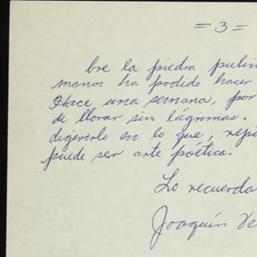 = 3 =
bre la piedra
manos ha podido hacer
Hace una semana, por
de llorar sin lágrimas.
digererlo en lo que,
puede ser arte poética.
Lo recuerda
Joaquín